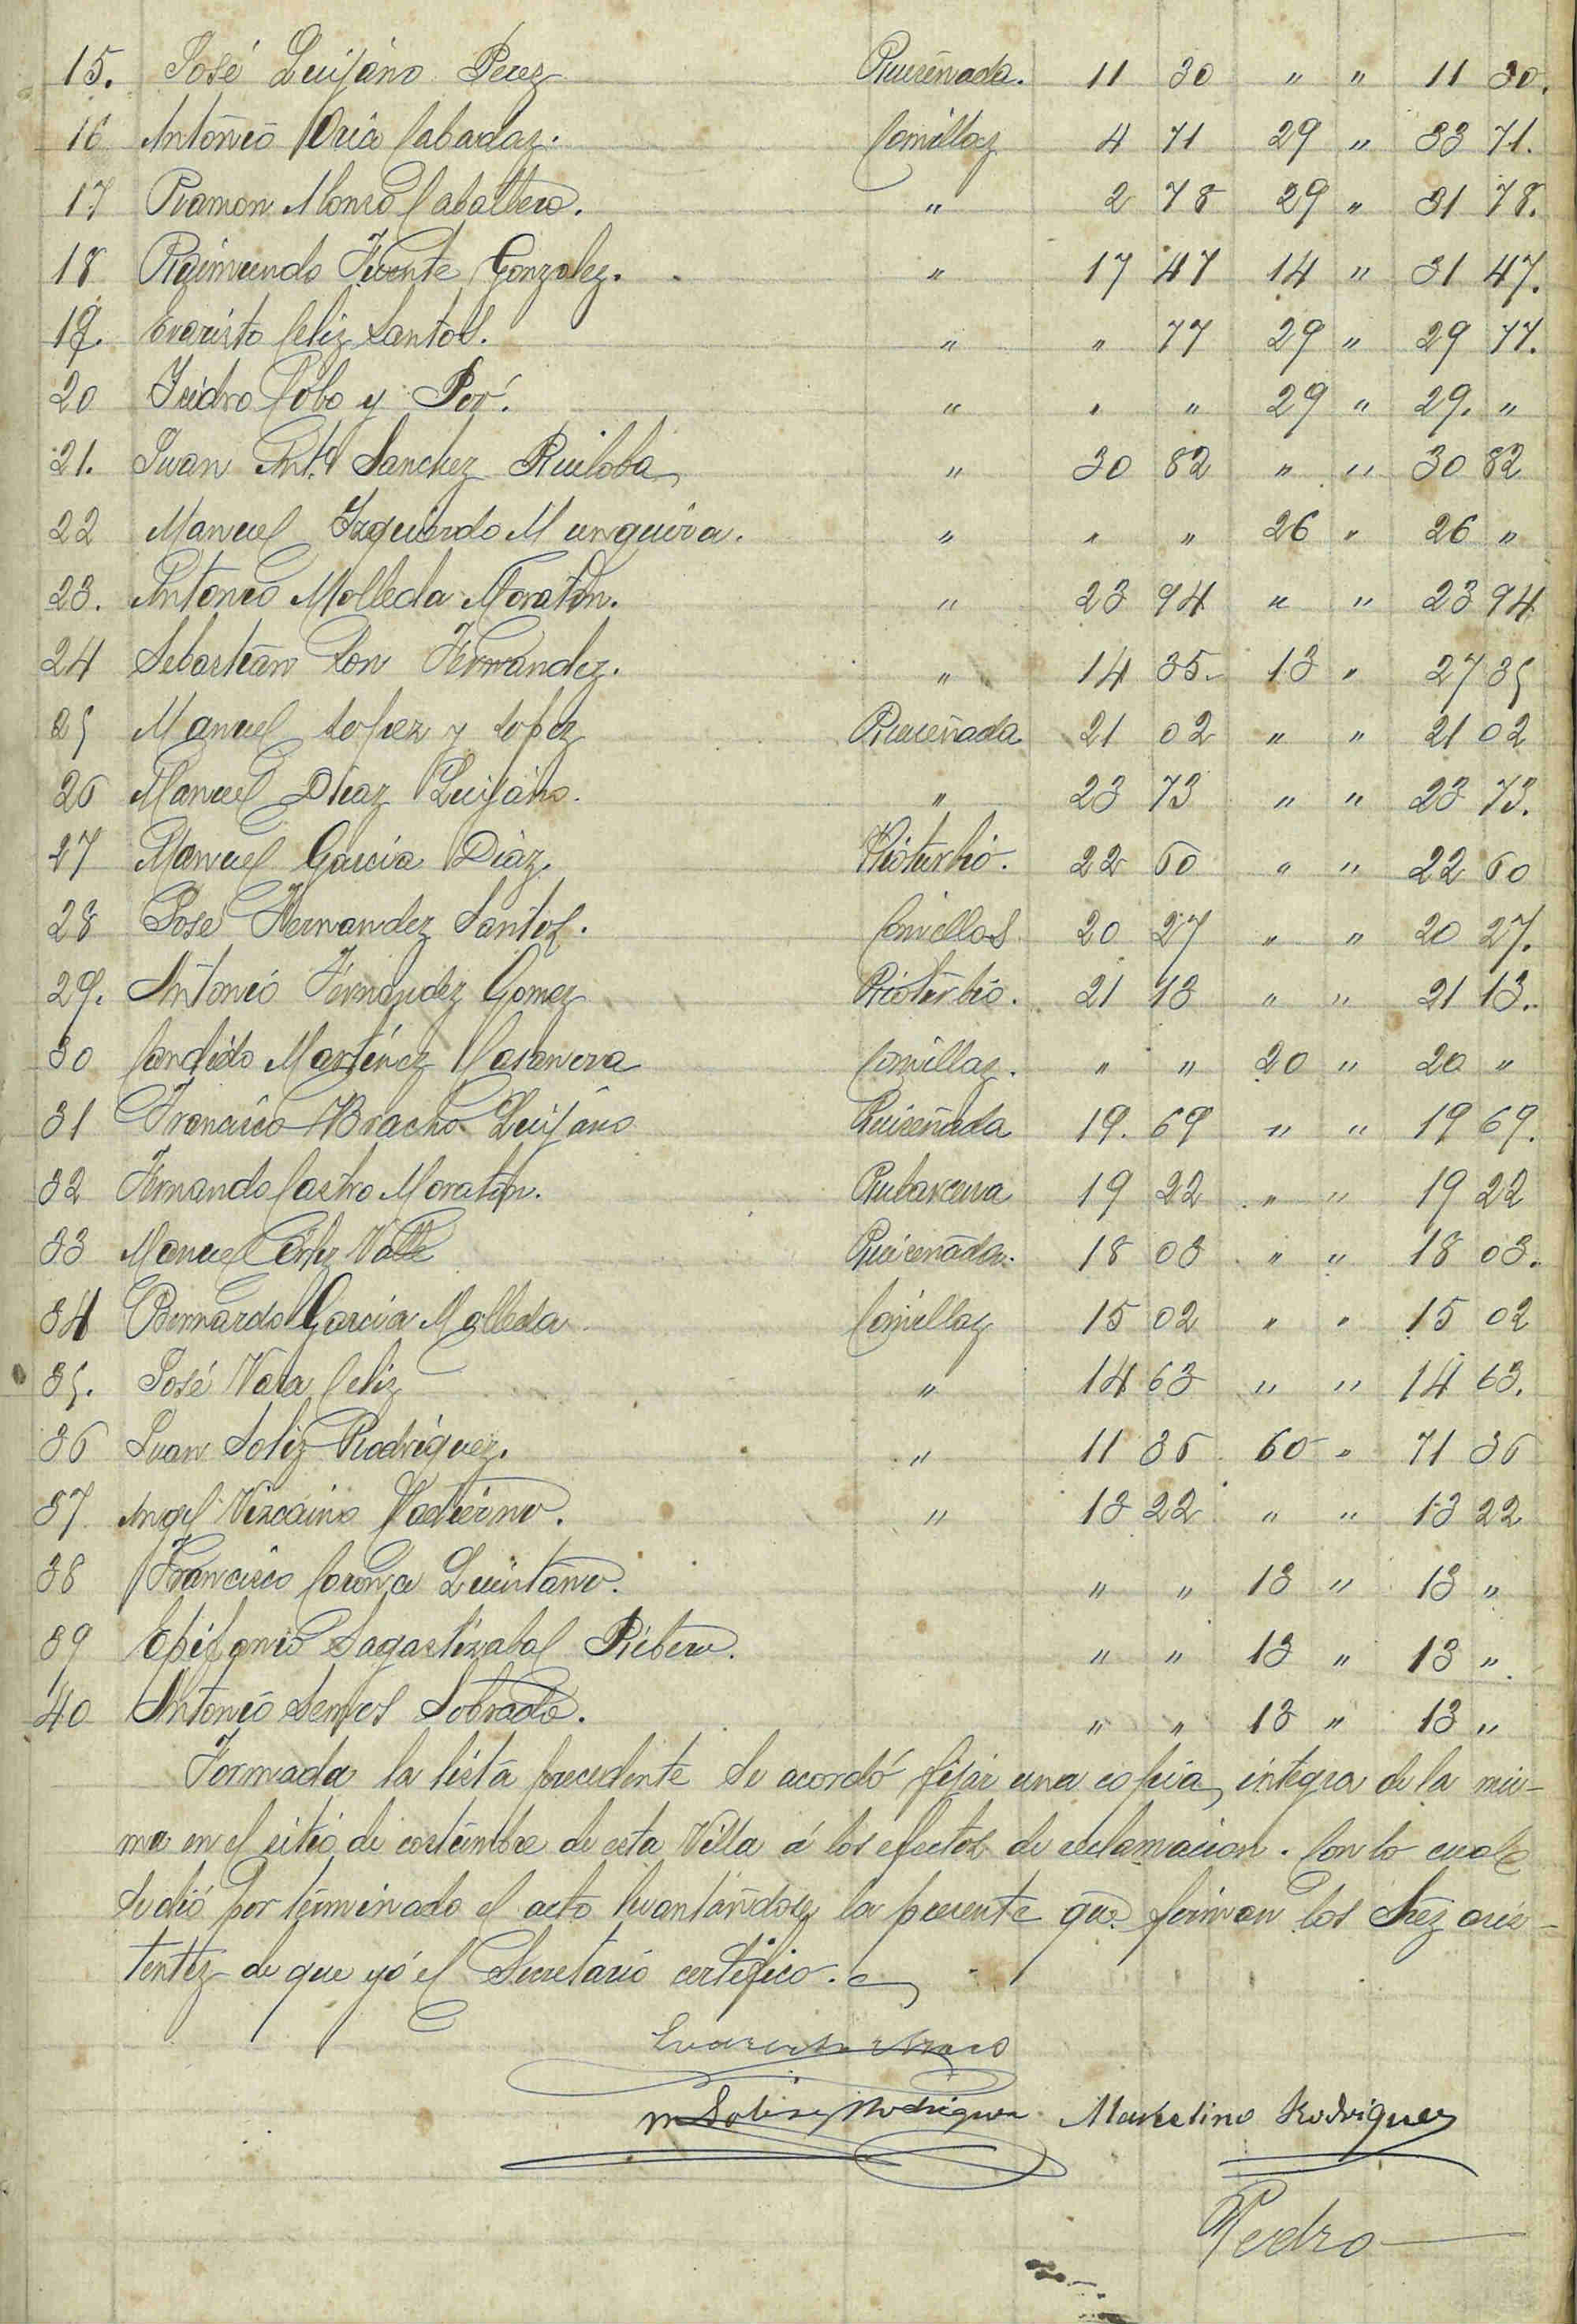 15. José Quijano Perez Ruiseñada. 11 30 " " 11 30.
16 Antonio Oria Cabadas. Comillas 4 71 29 " 33 71.
17 Ramon Alonso Caballero. " 2 78 29 " 31 78.
18 Raimundo Fuente Gonzalez. " 17 47 14 " 31 47.
19. Evaristo Celiz Santos. " " 77 29 " 29 77.
20 Isidro Cobo y Poó. " " " 29 " 29. "
21. Juan Antº Sanchez Ruiloba " 30 82 " " 30 82
22 Manuel Izquierdo Munguira. " " " 26 " 26 "
23. Antonio Molleda Moratin. " 23 94 " " 23 94
24 Sebastian Pon Fernandez. " 14 35 13 " 27 35
25 Manuel Lopez y Lopez Ruiseñada 21 02 " " 21 02
26 Manuel Diaz Quijano. " 23 73 " " 23 73.
27 Manuel Garcia Diaz. Rioturbio. 22 60 " " 22 60
28 Jose Fernandez Santos. Comillas 20 27 " " 20 27.
29. Antonio Fernandez Gomez Rioturbio. 21 13 " " 21 13.
30 Candido Martinez Casanueva Comillas. " " 20 " 20 "
31 Francisco Bracho Quijano Ruiseñada 19. 69 " " 19 69.
32 Fernando Castro Moratin. Rubarcena 19 22 " " 19 22
33 Manuel Valle Ruiseñada. 18 03 " " 18 03.
34 Bernardo Garcia Molleda Comillas 15 02 " " 15 02
35. José Vara Celiz " 14 63 " " 14 63.
36 Juan Soliz Rodriguez. " 11 36 60 " 71 36
37 Angel Vizcaino " 13 22 " " 13 22
38 Francisco Quintana. " " 13 " 13 "
39 Epifanio Sagastizabal Ribero. " " 13 " 13 "
40 Antonio Sobrado. " " 13 " 13 "
Formada la lista precedente se acordó fijar una copia integra de la mis-
ma en el sitio de costumbre de esta Villa á los efectos de reclamacion. Con lo cual
se dió por terminado el acto levantándose la presente que firman los Srez asis-
tentez de que yó el Secretario certifico.
M Solis y Rodriguez Marcelino Rodriguez
Pedro